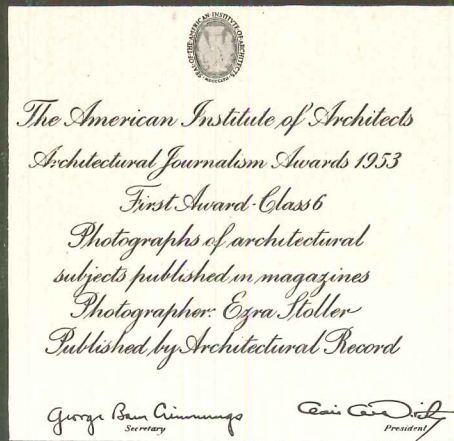 SEAL OF THE AMERICAN INSTITUTE OF ARCHITECTS
The American Institute of Architects
Architectural Journalism Awards 1953
First Award-Class 6
Photographs of architectural
subjects published in magazines
Photographer: Ezra Stoller
Published by Architectural Record
George Bain Cummings
Secretary
President